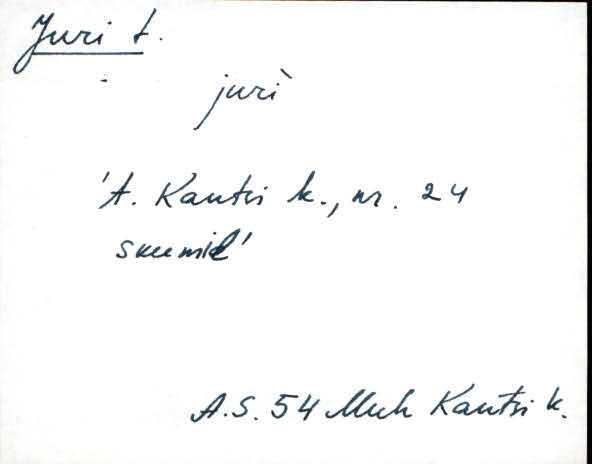 Juri t.
juri`
't. Kantsi k., nr. 24
suunik'
A.S. 54 Muh Kantsi k.